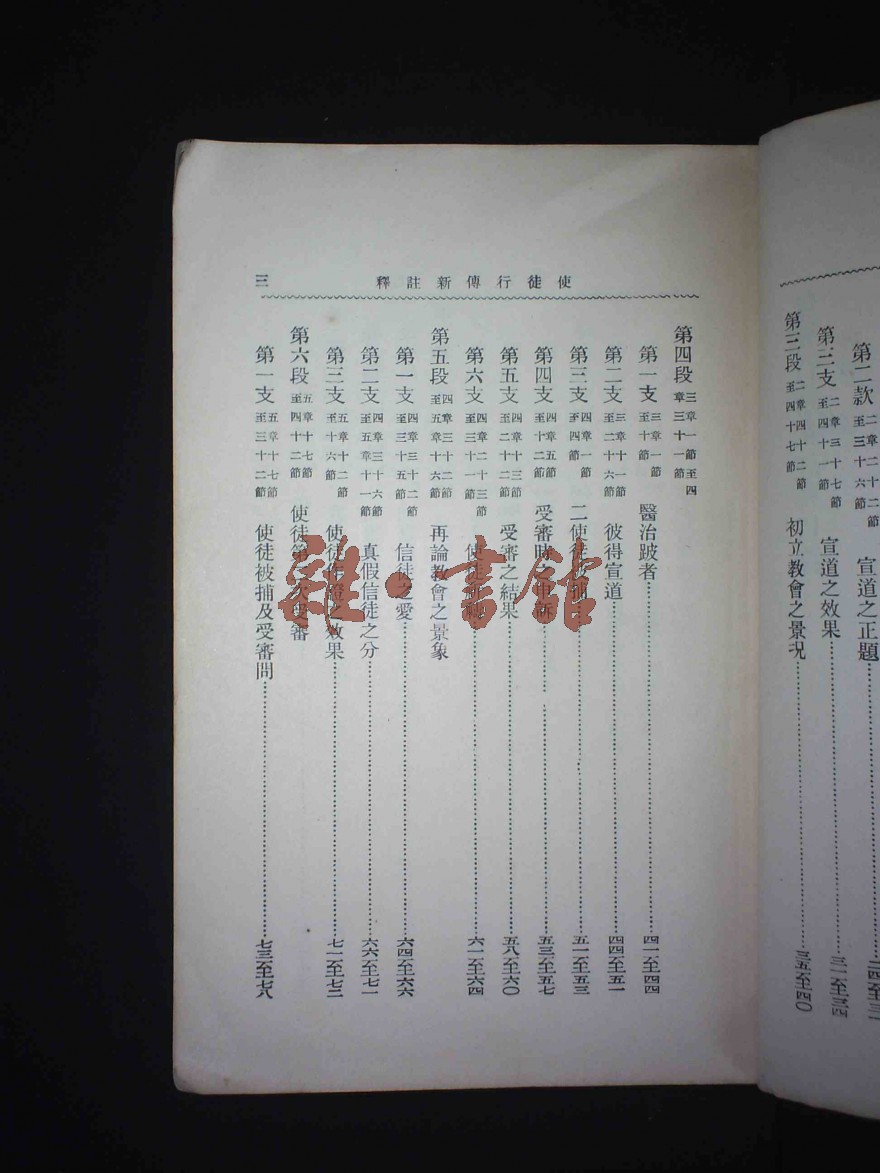 第二款 二章二十二節至三十六節 宣道之正題
第三支 二章三十七節至四十一節 宣道之效果 三一至三四
第三段 二章四十二節至四十七節 初立教會之景况 三五至四〇
使徒行傳新註釋 三
第四段 三章一節至四章三十一節
第一支 三章一節至十節 醫治跛者 四一至四四
第二支 三章十一節至二十六節 彼得宣道 四四至五一
第三支 四章一節至四節 二使徒被捕 五一至五三
第四支 四章五節至十二節 受審時之申訴 五三至五七
第五支 四章十三節至二十二節 受審之結果 五八至六〇
第六支 四章二十三節至三十一節 使徒 六一至六四
第五段 四章三十二節至五章十六節 再論教會之景象
第一支 四章三十二節至三十五節 信徒之愛 六四至六六
第二支 四章三十六節至五章十一節 真假信徒之分 六六至七一
第三支 五章十二節至十六節 使徒作證之效果 七一至七三
第六段 五章十七節至四十二節 使徒第二次受審
第一支 五章十七節至三十二節 使徒被捕及受審問 七三至七八
雜·書館